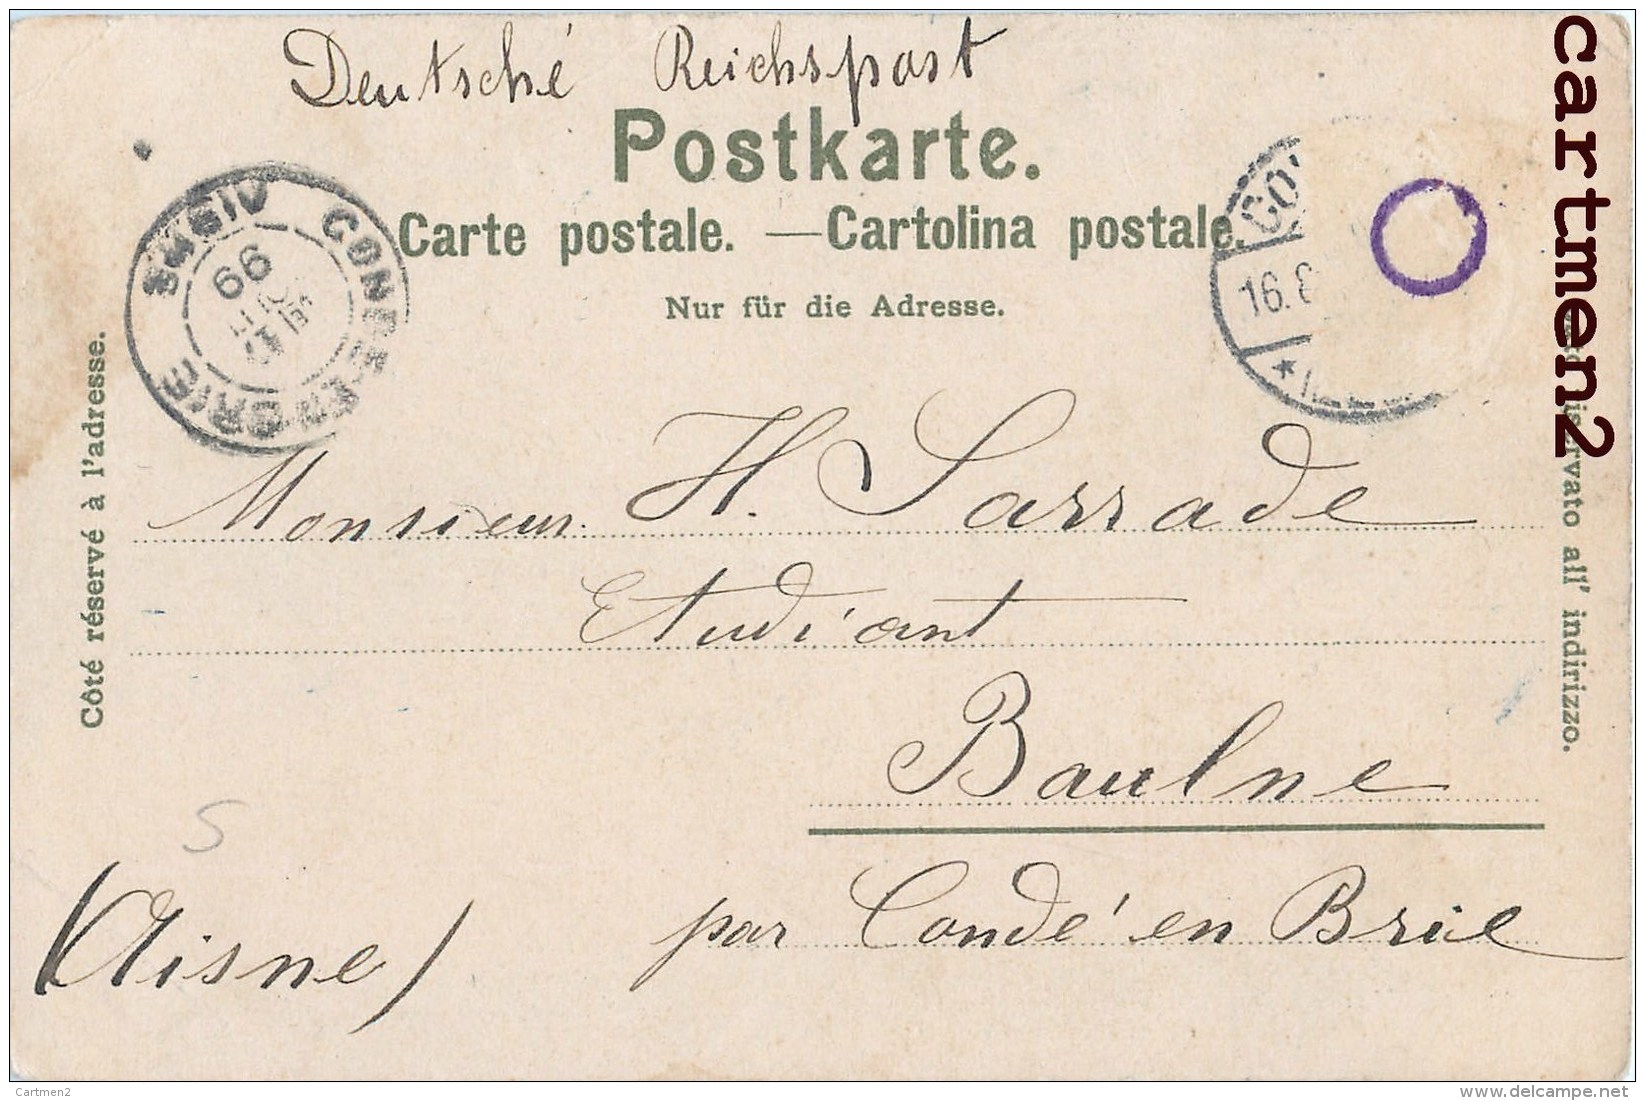 Deutsché Reichspost
Postkarte.
Carte postale. — Cartolina postale.
Nur für die Adresse.
CONDE-EN-BRIE
AISNE
99
16.8
Côté réservé à l'adresse.
all' indirizzo.
Monsieur H. Sarrade
Etudiant
Baulne
par Condé en Brie
(Aisne)
S
cartmen2
Cartmen2
delcampe.net